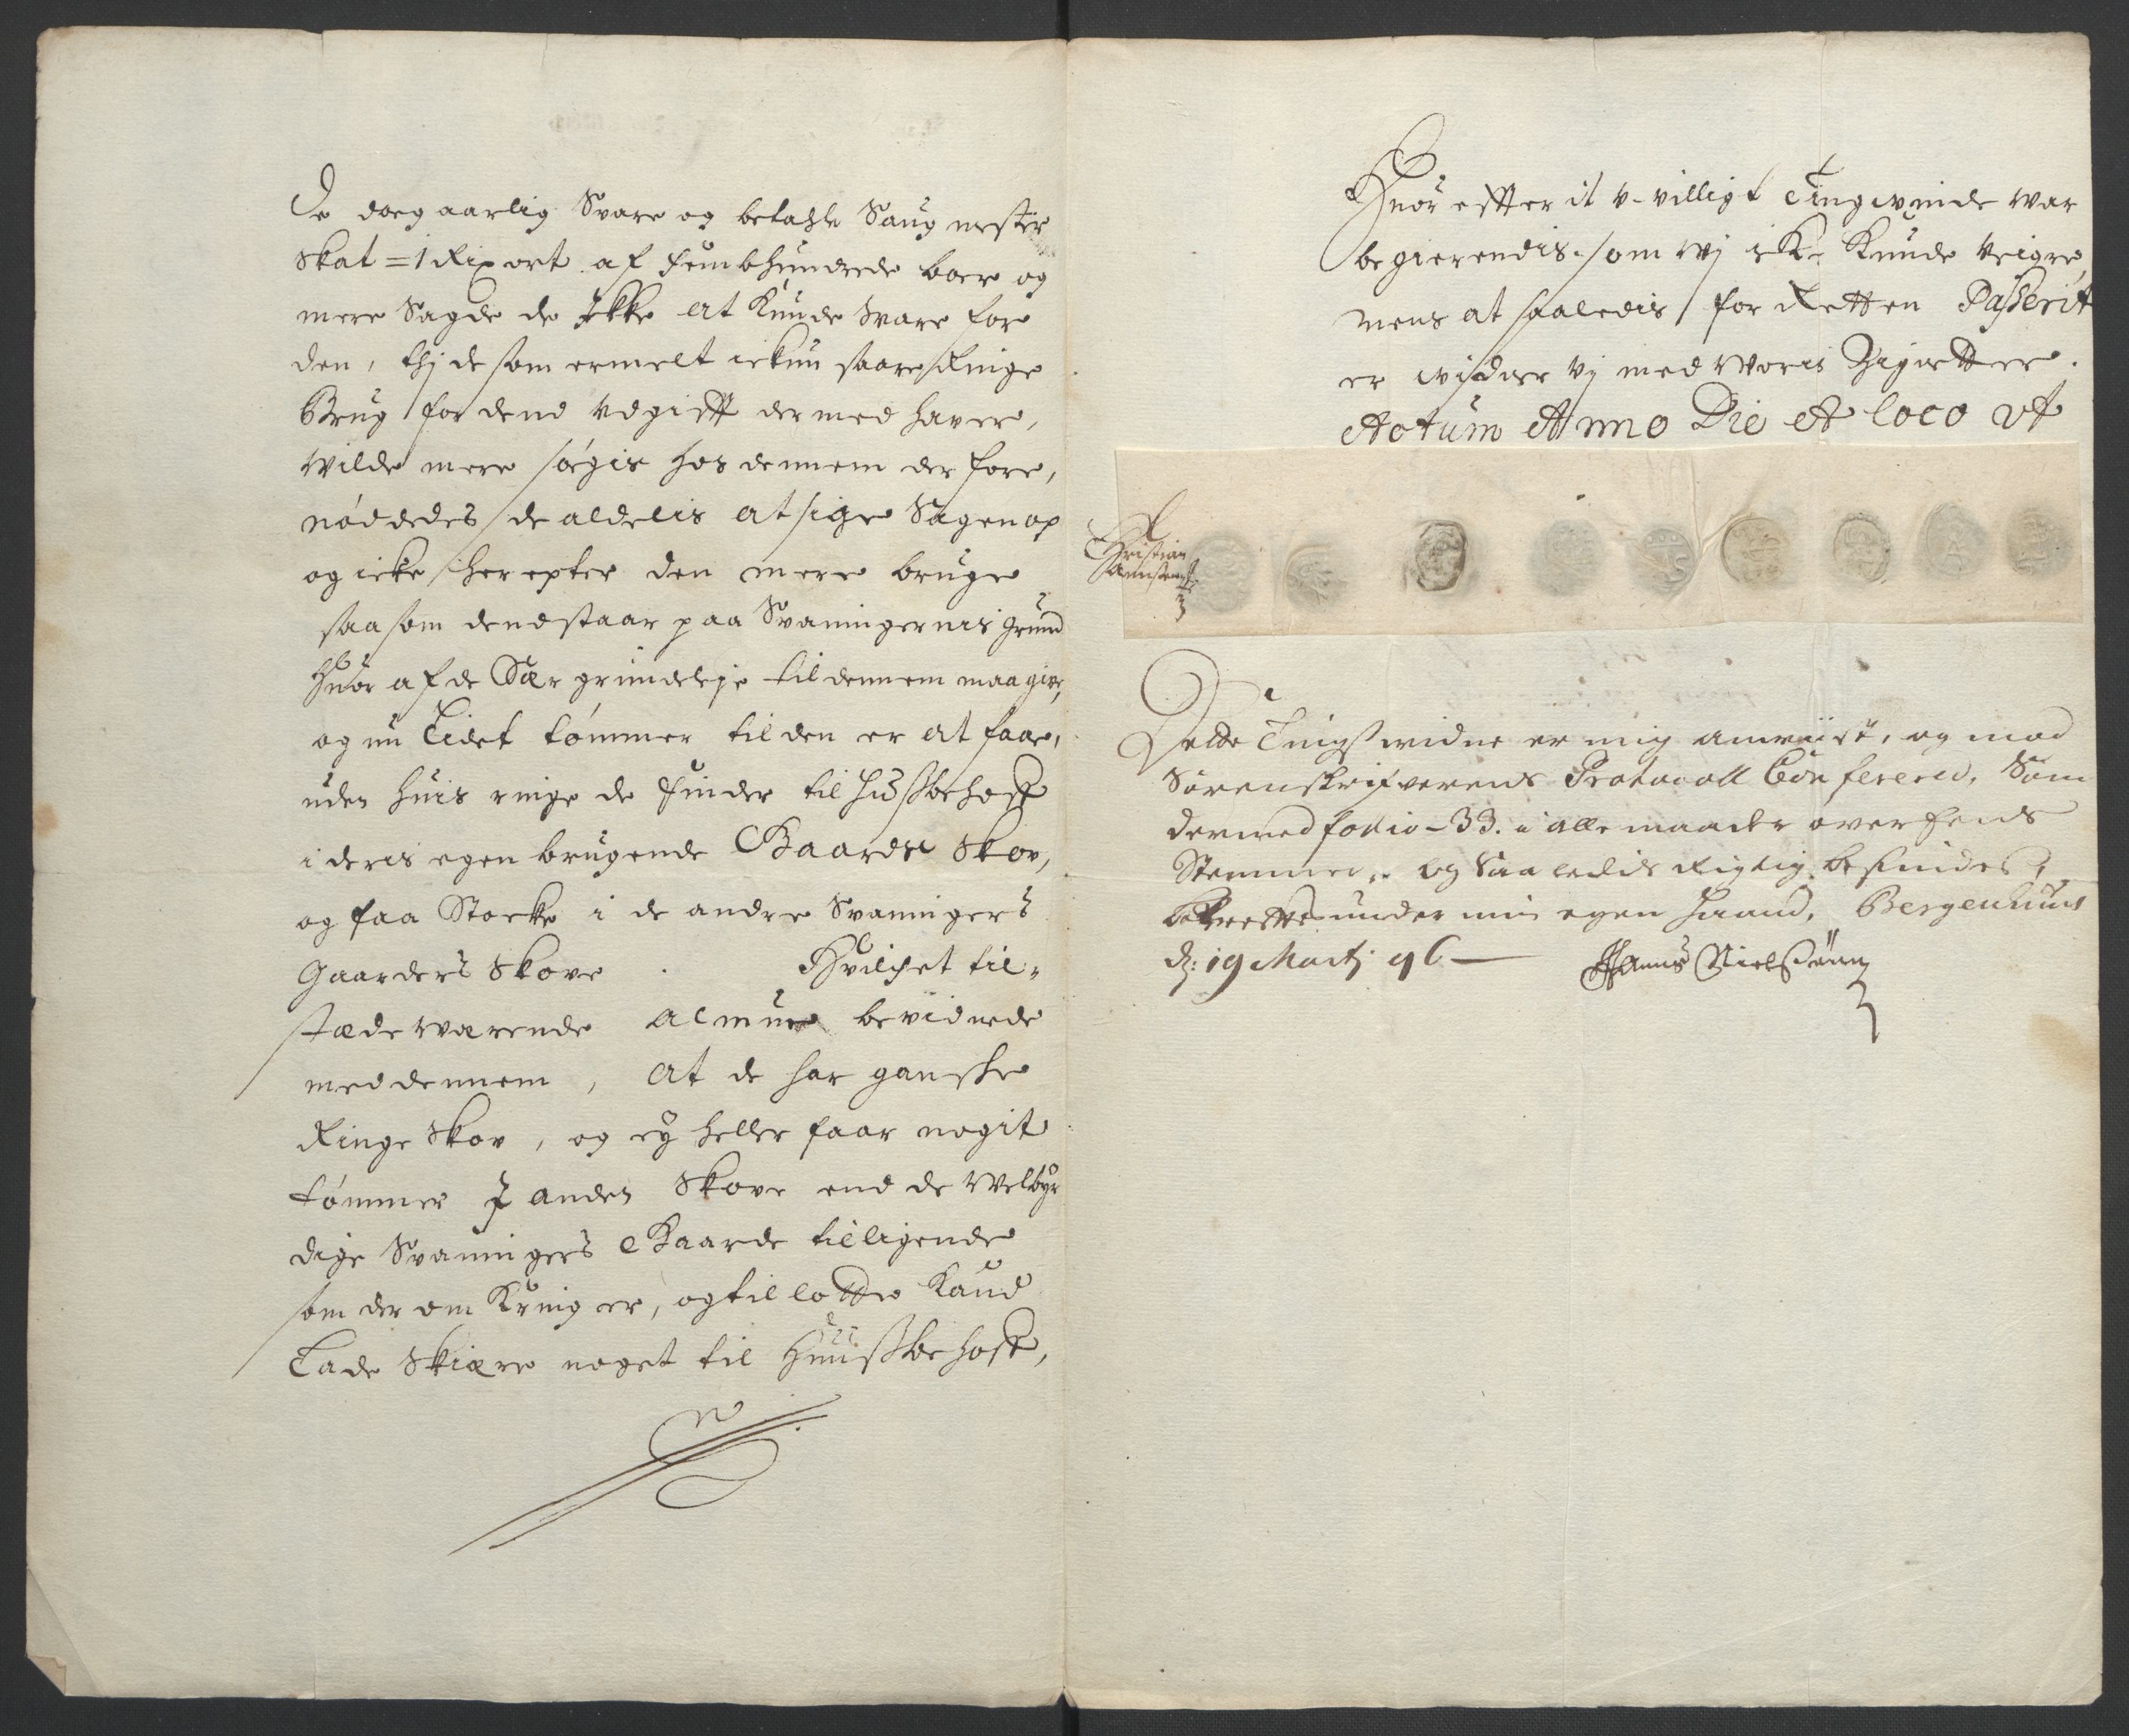 De dog aarlig Svare og betahle Saug mester
Skat = 1 Rix ort af fembhundrede boer og
mere Sagde de Ikke at Kunde Svare for
den, thj de som ermelt ickun saare Ringe
Brug for dend Udgifft der med haver,
Wilde mere søgis hos dennem der fore,
nøddedes de aldelis at sige Sagen op
og icke her epter den mere bruge
saa som dend staar paa Svaningernis grund
huor af de Sær grundeleje til dennem maa give,
og nu Lidet tømmer til den er at faae,
uden huis ringe de finder til hussbehoff
i deris egen brugende Gaards Skov,
og faa Stocke i de andre Svaningers
Gaarders Skove Hvilchet til-
stæde værende almue bevidnede
med dennem, at de har ganske
Ringe Skov, og ey heller faar nogit
tømmer I anden Skove end de Welbyr
dige Svaningers Gaarde tilligende
som der om Kring er, og tillotte Kand
Lade Skiære noget til Huussbehoff,
Huor effter it u-villigt Tingwinde war
begierendis som wj icke Kunde Veigre,
mens at saaledis for Retten Passerit
er widner Vj med Woris Zignetter.
Actum Anno Die et loco Ut
Christian
Dette Tingswidne er mig anwiist, og med
Sorenskrifwerens Protocoll Confererit, Som
dermed folio-33. i alle maader overEens
Stemmer, og Saaledis Rigtig befindes,
bekreffter under min egen Haand, Bergenhuus
d: 19 Martj 96 Hanns Nielssønn